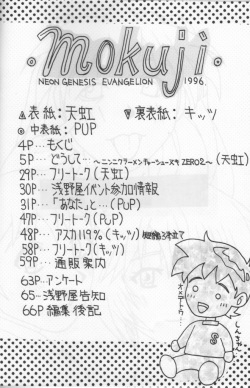 mokuji
NEON GENESIS EVANGELION 1996.
▲表紙：天虹 ▼裏表紙：キッツ
◎中表紙：PUP
4P…もくじ
5P…どうして…〜ニンニクラーメンチャーシューヌキ ZERO2〜(天虹)
29P…フリートーク(天虹)
30P…浅野屋イベント参加情報
31P…「あなた」と…(PUP)
47P…フリートーク(PUP)
48P…アスカ119%(キッツ)
58P…フリートーク(キッツ)
59P…通販案内
63P…アンケート
65…浅野屋告知
66P…編集後記
オメデトウ…
S